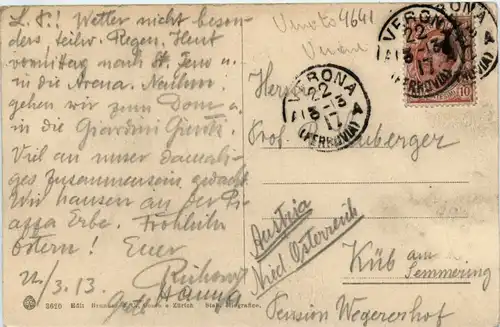 L. P.! Wetter nicht beson-
ders teilw. Regen. Heut
vormittag nach St. Zeno u. in
die Arena. Nachm.
gehen wir zum Dom u.
in die Giardini Giusti.
Viel an unser damali-
ges Zusammensein gedacht
Wir hausen an der Pi-
azza Erbe. Fröhliche
Ostern! Euer
22/3.13.
Hansa
3620 Edit.
Zürich
4641
VERONA
22-3
17
(FERROVIA)
VERONA
22-3
17
(FERROVIA)
10
Herrn
Prof.
Austria
Nied. Österreich
Küb am
Semmering
Pension Wegererhof